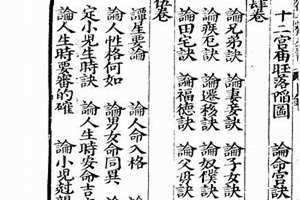 十二宮庙旺落陷圖 論命宮訣
卷
論兄弟訣 論妻妾訣 論子女訣
論疾厄訣 論遷移訣 論奴僕訣
論田宅訣 論福德訣 論父母訣
卷
譚星要論 論人命入格
論人性格何如 論男女命同異
定小兒生時訣 論人生時安命吉
論人生時要審的確 論小兒尅親